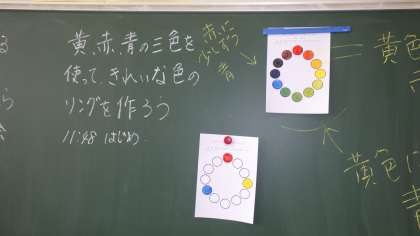 黄、赤、青の三色を
使って、きれいな色の
リングを作ろう
11:48 はじめ
赤に
少しずつ
青
＝黄色
黄色に
青